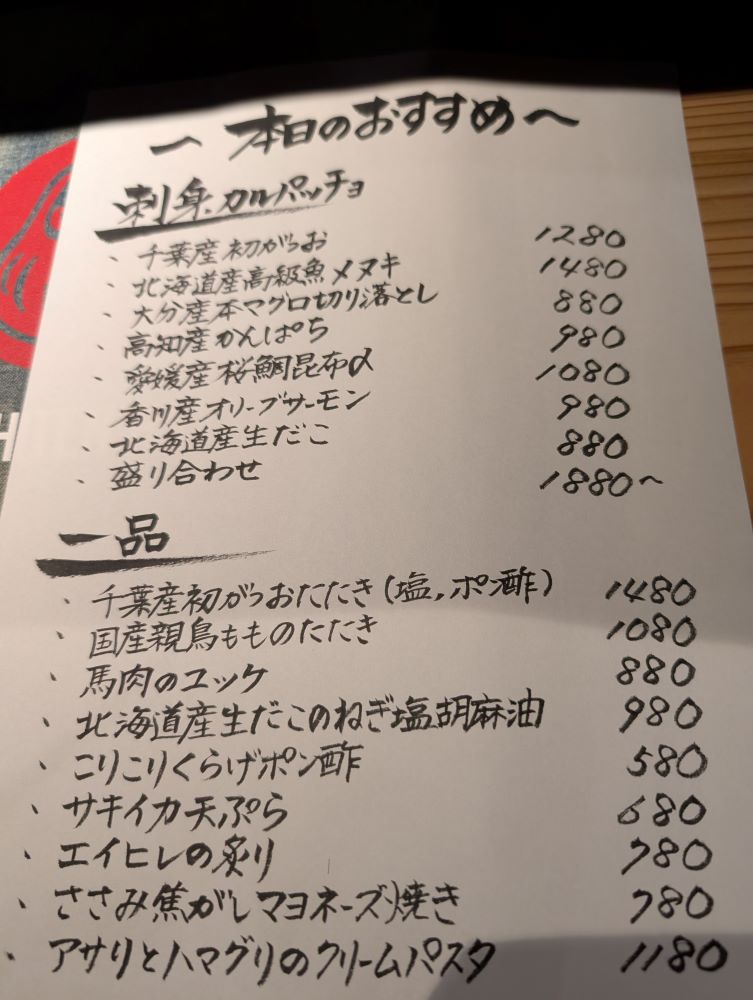 ～本日のおすすめ～
刺身、カルパッチョ
・千葉産初がつお 1280
・北海道産高級魚メヌキ 1480
・大分産本マグロ切り落とし 880
・高知産かんぱち 980
・愛媛産桜鯛昆布〆 1080
・香川産オリーブサーモン 980
・北海道産生だこ 880
・盛り合わせ 1880～
一品
・千葉産初がつおたたき(塩,ポン酢) 1480
・国産親鳥もものたたき 1080
・馬肉のユッケ 880
・北海道産生だこのねぎ塩胡麻油 980
・こりこりくらげポン酢 580
・サキイカ天ぷら 680
・エイヒレの炙り 780
・ささみ焦がしマヨネーズ焼き 780
・アサリとハマグリのクリームパスタ 1180
H